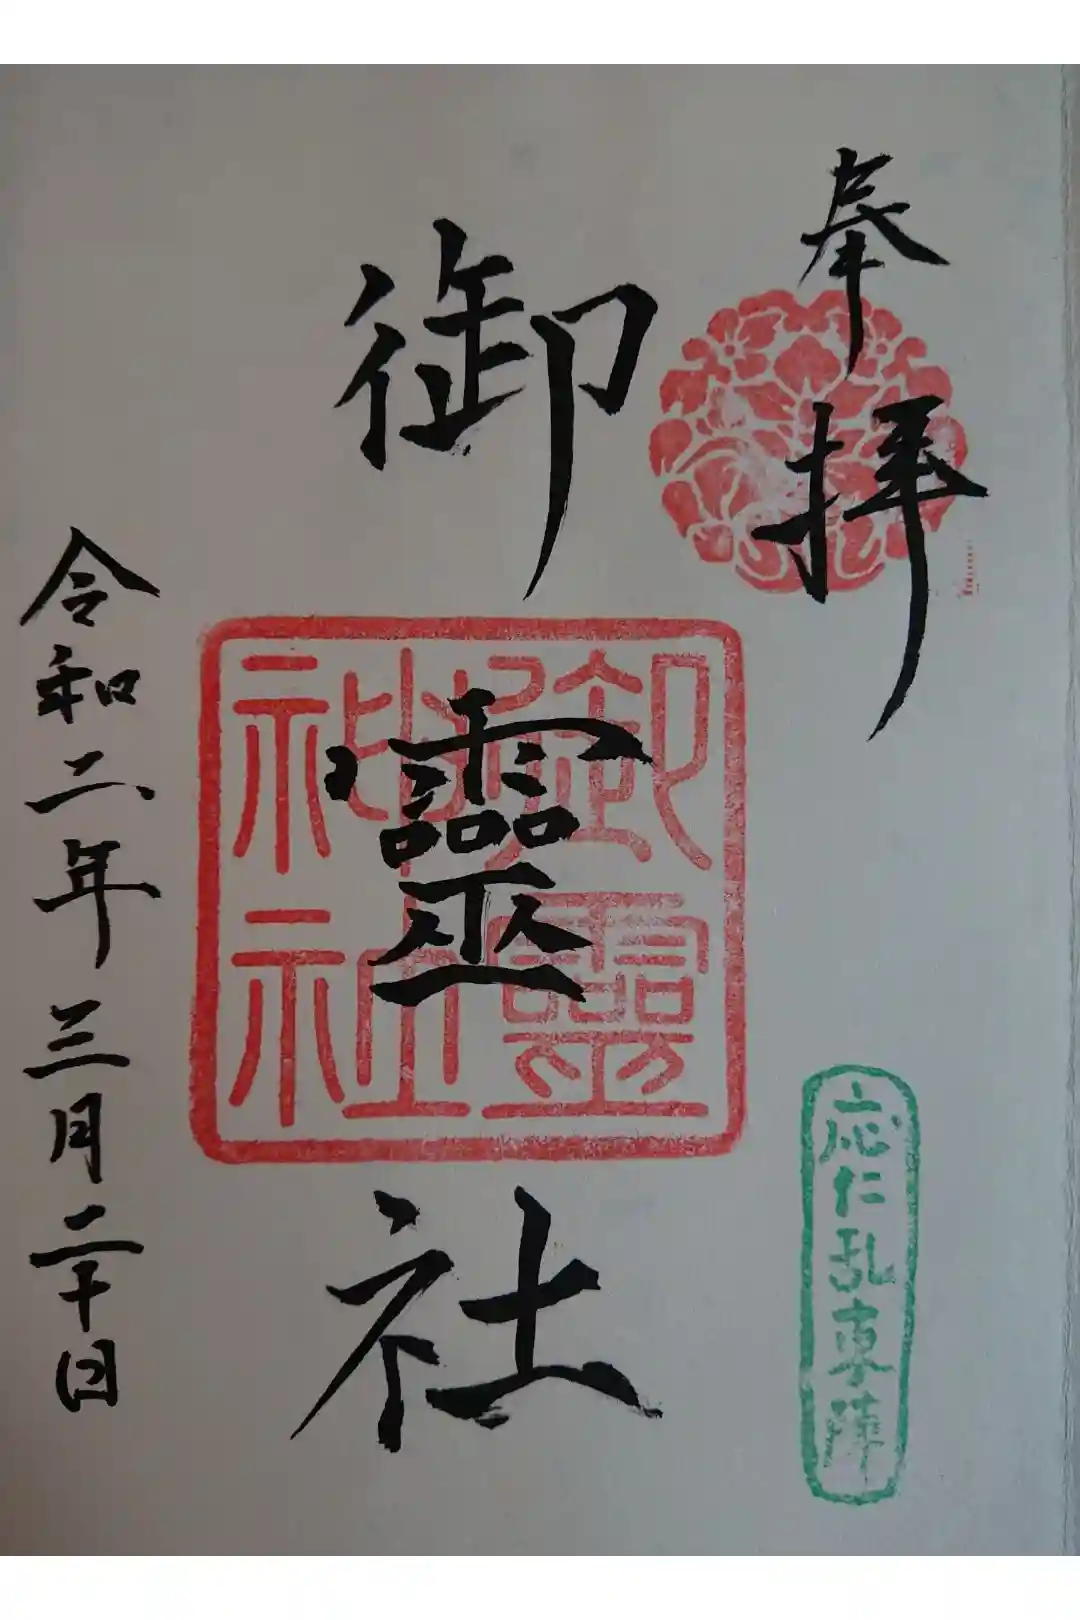 奉拝
御靈社
御靈
神社
応仁乱東陣
令和二年三月二十日